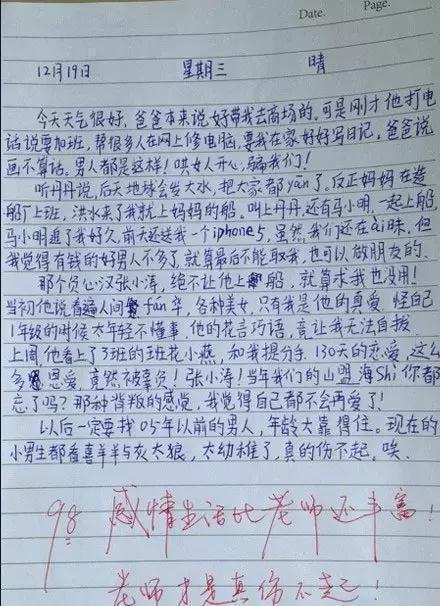 Date.
Page.
12月19日 星期三 晴
今天天气很好,爸爸本来说好带我去商场的,可是刚才他打电
话说要加班,帮很多人在网上修电脑,要我在家好好写日记,爸爸说
画不算话。男人都是这样!哄女人开心,骗我们!
听丹丹说,后天地球会发大水,把大家都yān了。反正妈妈在造
船厂上班,洪水来了我就上妈妈的船。叫上丹丹,还有马小明,一起上船,
马小明追了我好久,前天还送我一个iphone5,虽然我们还在ai昧,但
我觉得有钱的好男人不多了,就算最后不能取我,也可以做朋友的.
那个负心汉张小涛,绝不让他上船,就算求我也没用!
当初他说看遍人间fán华,各种美女,只有我是他的真爱,怪自己
1年级的时候太年轻不懂事,他的花言巧语,竟让我无法自拔
上周他看上了3班的班花小燕,和我提分手,130天的恋爱,这么
多恩爱,竟然被辜负!张小涛!当年我们的山盟海Shi你都
忘了吗?那种背叛的感觉,我觉得自己都不会再爱了!
以后一定要找05年以前的男人,年龄大靠得住。现在的
小男生都看喜羊羊与灰太狼,太幼稚了,真的伤不起,唉.
98 感情生活比老师还丰富!
老师才是真伤不起!